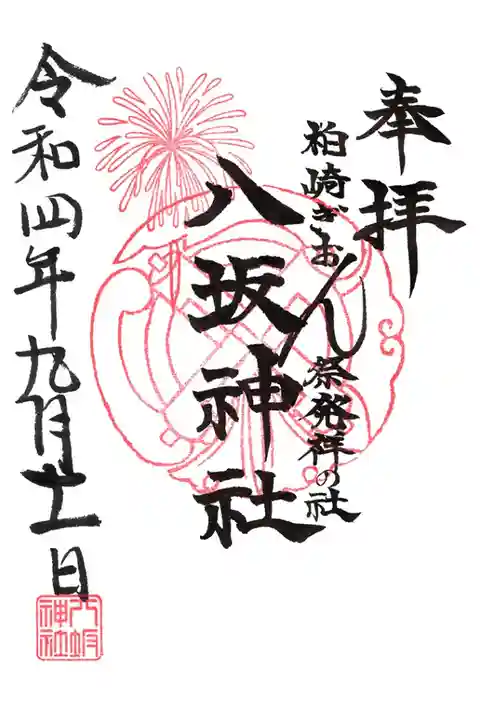 奉拝
柏崎ぎおん祭発祥の社
八坂神社
令和四年九月十一日
八坂
神社